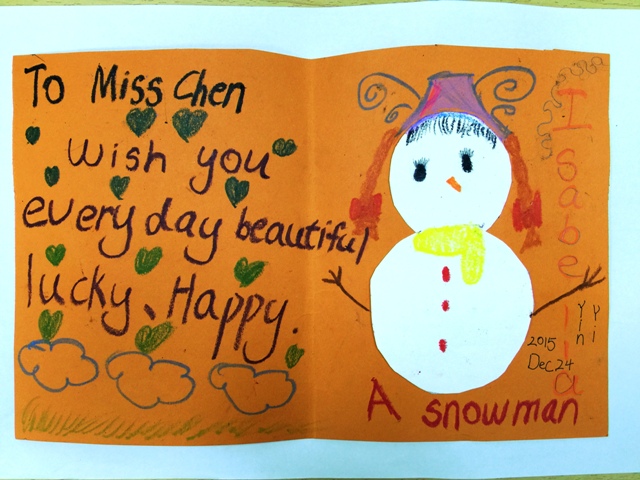 To Miss Chen
Wish you
every day beautiful
lucky、Happy.
Isabella
Yin Yi
2015
Dec 24
A snowman